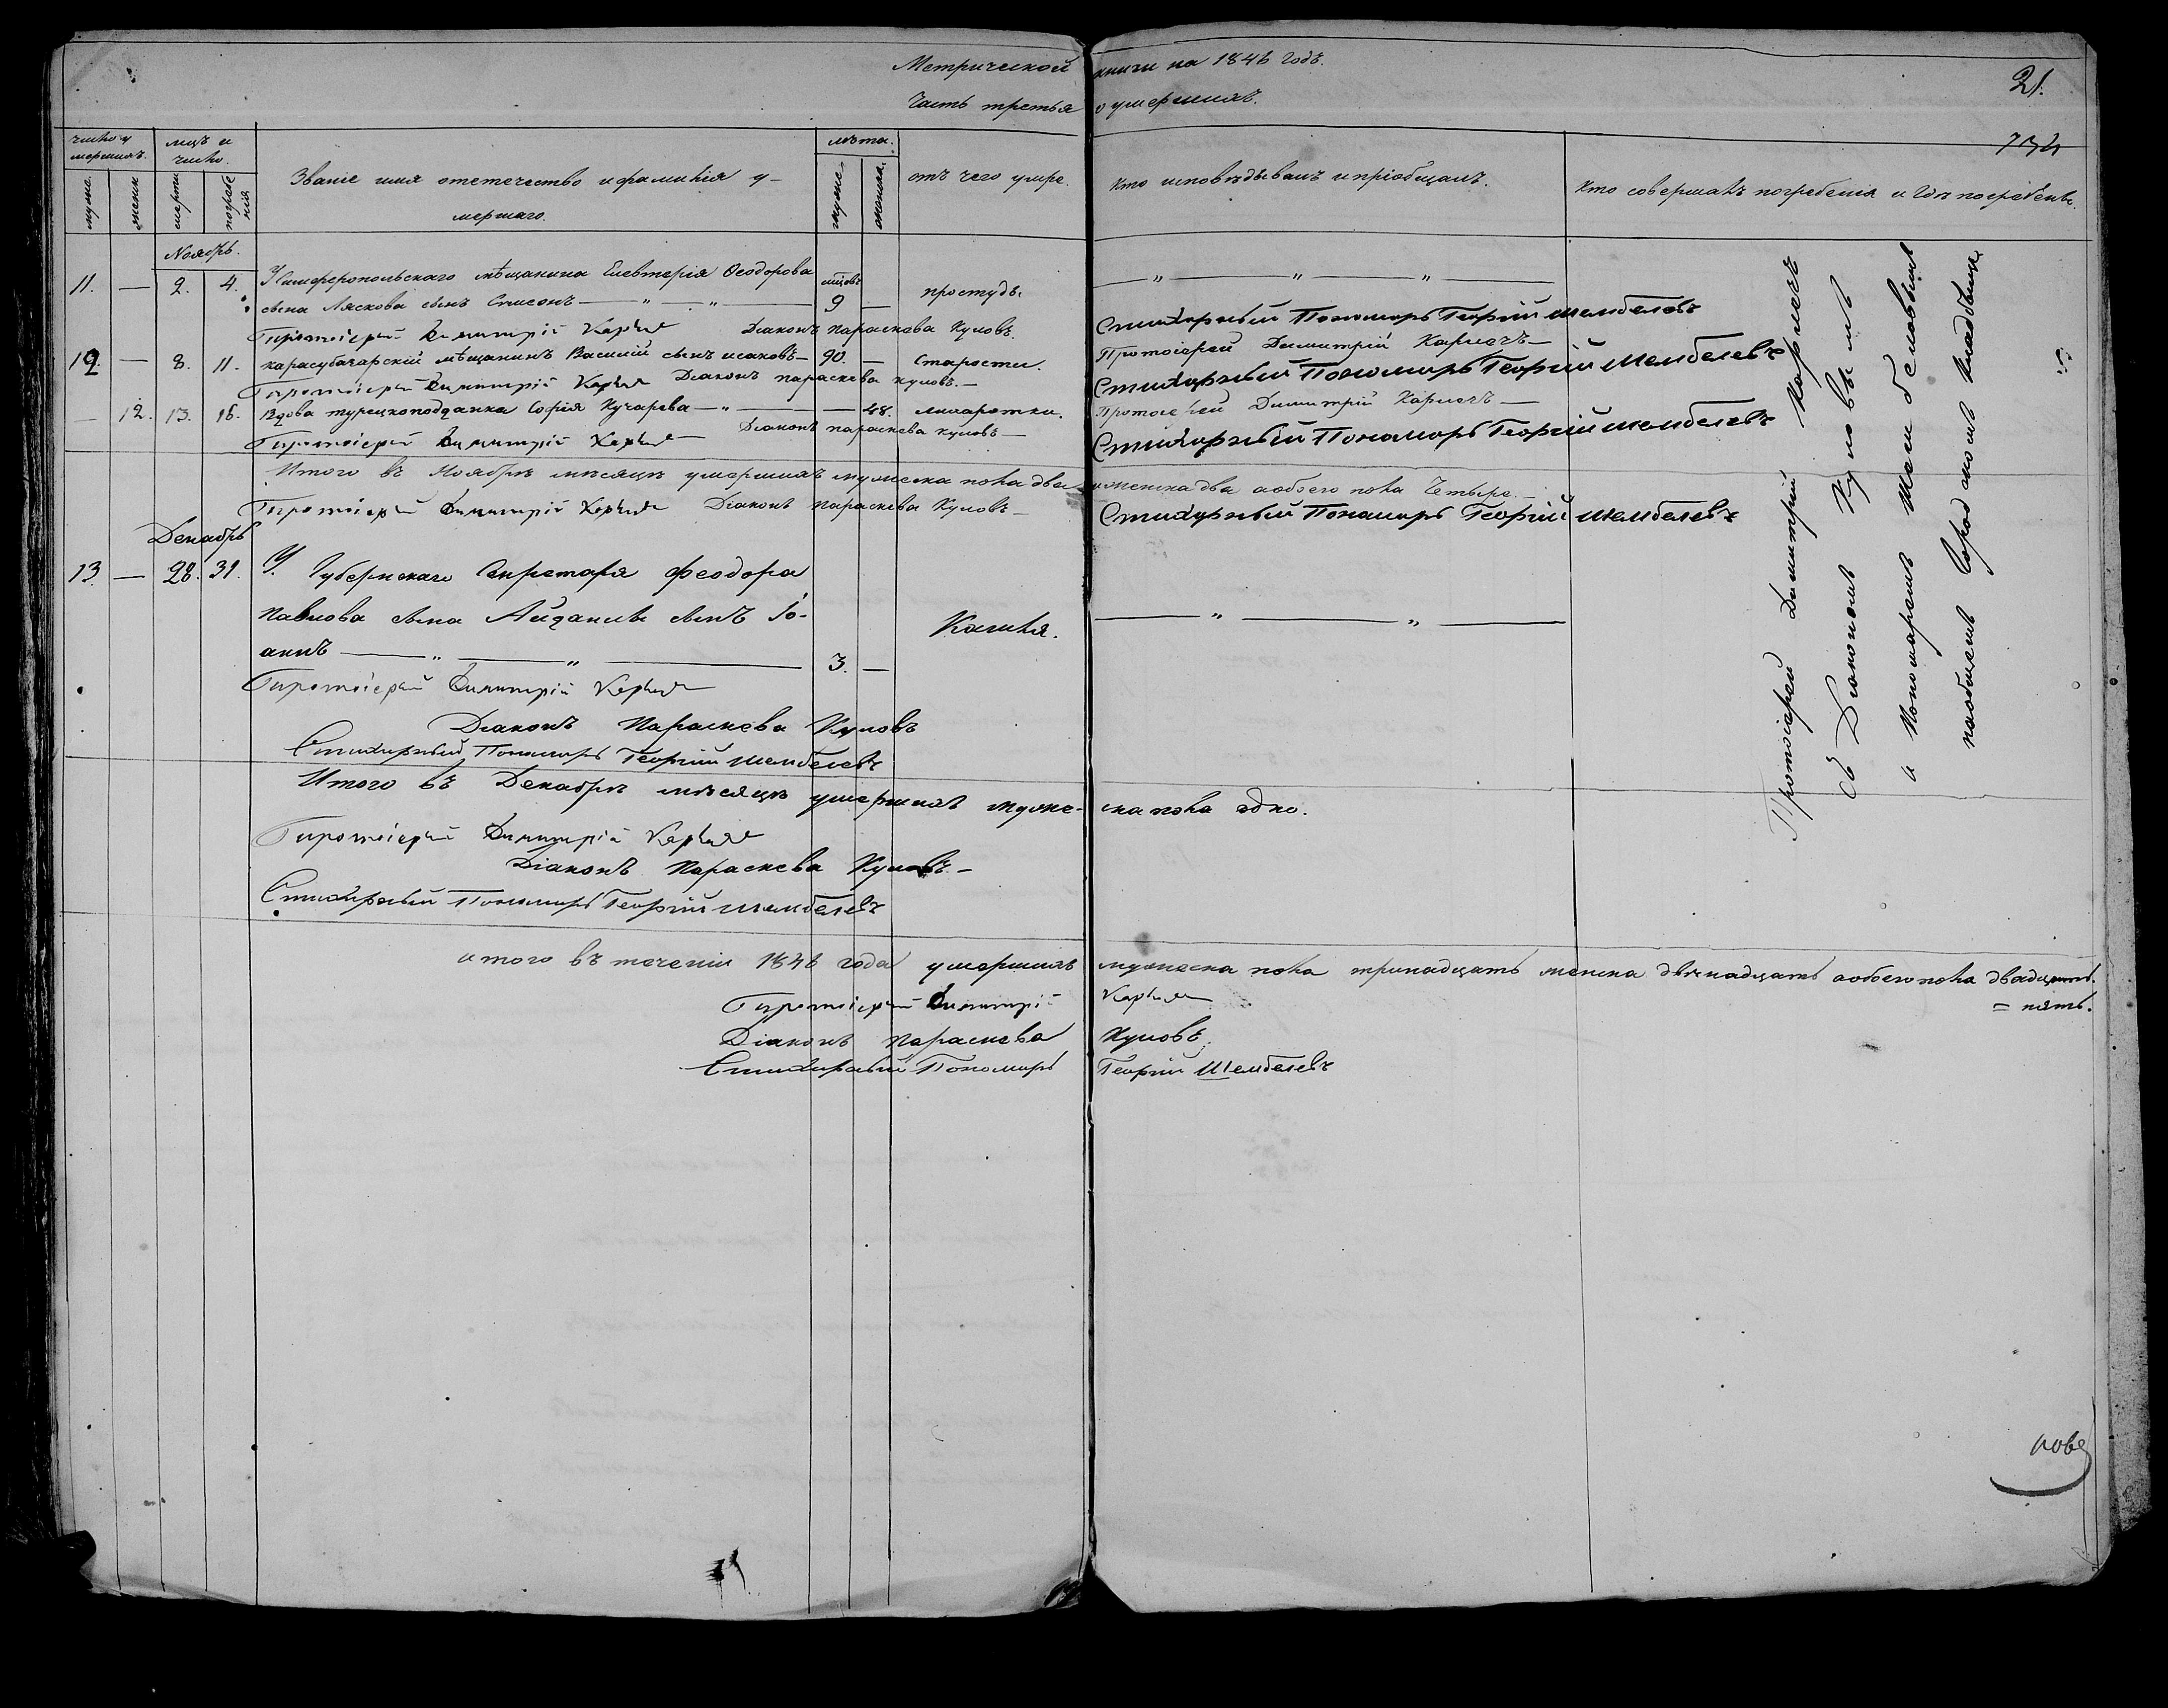 Метрической книги на 1846 годъ.
Часть третья о умершихъ.
21.
734
число умершихъ.
мцъ и число.
Званіе имя отечество и фамилія умершаго.
лѣта.
отъ чего умре.
кто исповѣдывалъ и пріобщалъ.
кто совершалъ погребенія и гдѣ погребены.
мужс.
женск
смерти
погребенія
мужс.
женска.
Ноябрь.
11. — 2. 4. У Симферопольскаго мѣщанина Елевтерія Ѳеодорова
сына Ляскова сынъ Симеонъ — „ — „ — мцовъ 9 — простуды — „ — „ — „ —
Протоіерей Димитрій Дiаконъ Параскева Кумовъ. Стихарный Пономарь Георгій Шембелевъ
12. — 8. 11. карасубазарскій мѣщанинъ Василій сынъ исаковъ — 90. — Старости. Протоіерей Димитрій
Протоіерей Димитрій Дiаконъ параскева кумовъ. — Стихарный Пономарь Георгій Шембелевъ
— 12. 13. 15. Вдова турецкоподданка Софія Кучарева — „ — — 48. лихоратки. Протоіерей Димитрій
Протоіерей Димитрій Дiаконъ параскева кумовъ — Стихарный Пономарь Георгій Шембелевъ
Итого въ Ноябрѣ мѣсяцѣ умершихъ мужеска пола два женска два а обоего пола Четыре. —
Протоіерей Димитрій Дiаконъ Параскева Кумовъ — Стихарный Пономарь Георгій Шембелевъ
Декабрь
13. — 28. 31. У Губернскаго Секретаря Феодора
Павлова сына сынъ Іо-
анъ — „ — „ — 3. — Кашля. — „ — „ —
Протоіерей Димитрій
Дiаконъ Параскева Кумовъ
Стихарный Пономарь Георгій Шембелевъ
Итого въ Декабрѣ мѣсяцѣ умершихъ муже- ска пола одно.
Протоіерей Димитрій
Дiаконъ Параскева Кумовъ —
Стихарный Пономарь Георгій Шембелевъ
Протоіерей Димитрій
съ Дiакономъ Кумовымъ
и Пономаремъ Шембелевымъ
на общемъ Городскомъ Кладбищѣ
итого въ теченіи 1846 года умершихъ мужеска пола тринадцать женска двѣнадцать а обоего пола двадцать
= пять.
Протоіерей Димитрій
Дiаконъ Параскева Кумовъ.
Стихарный Пономарь Георгій Шембелевъ